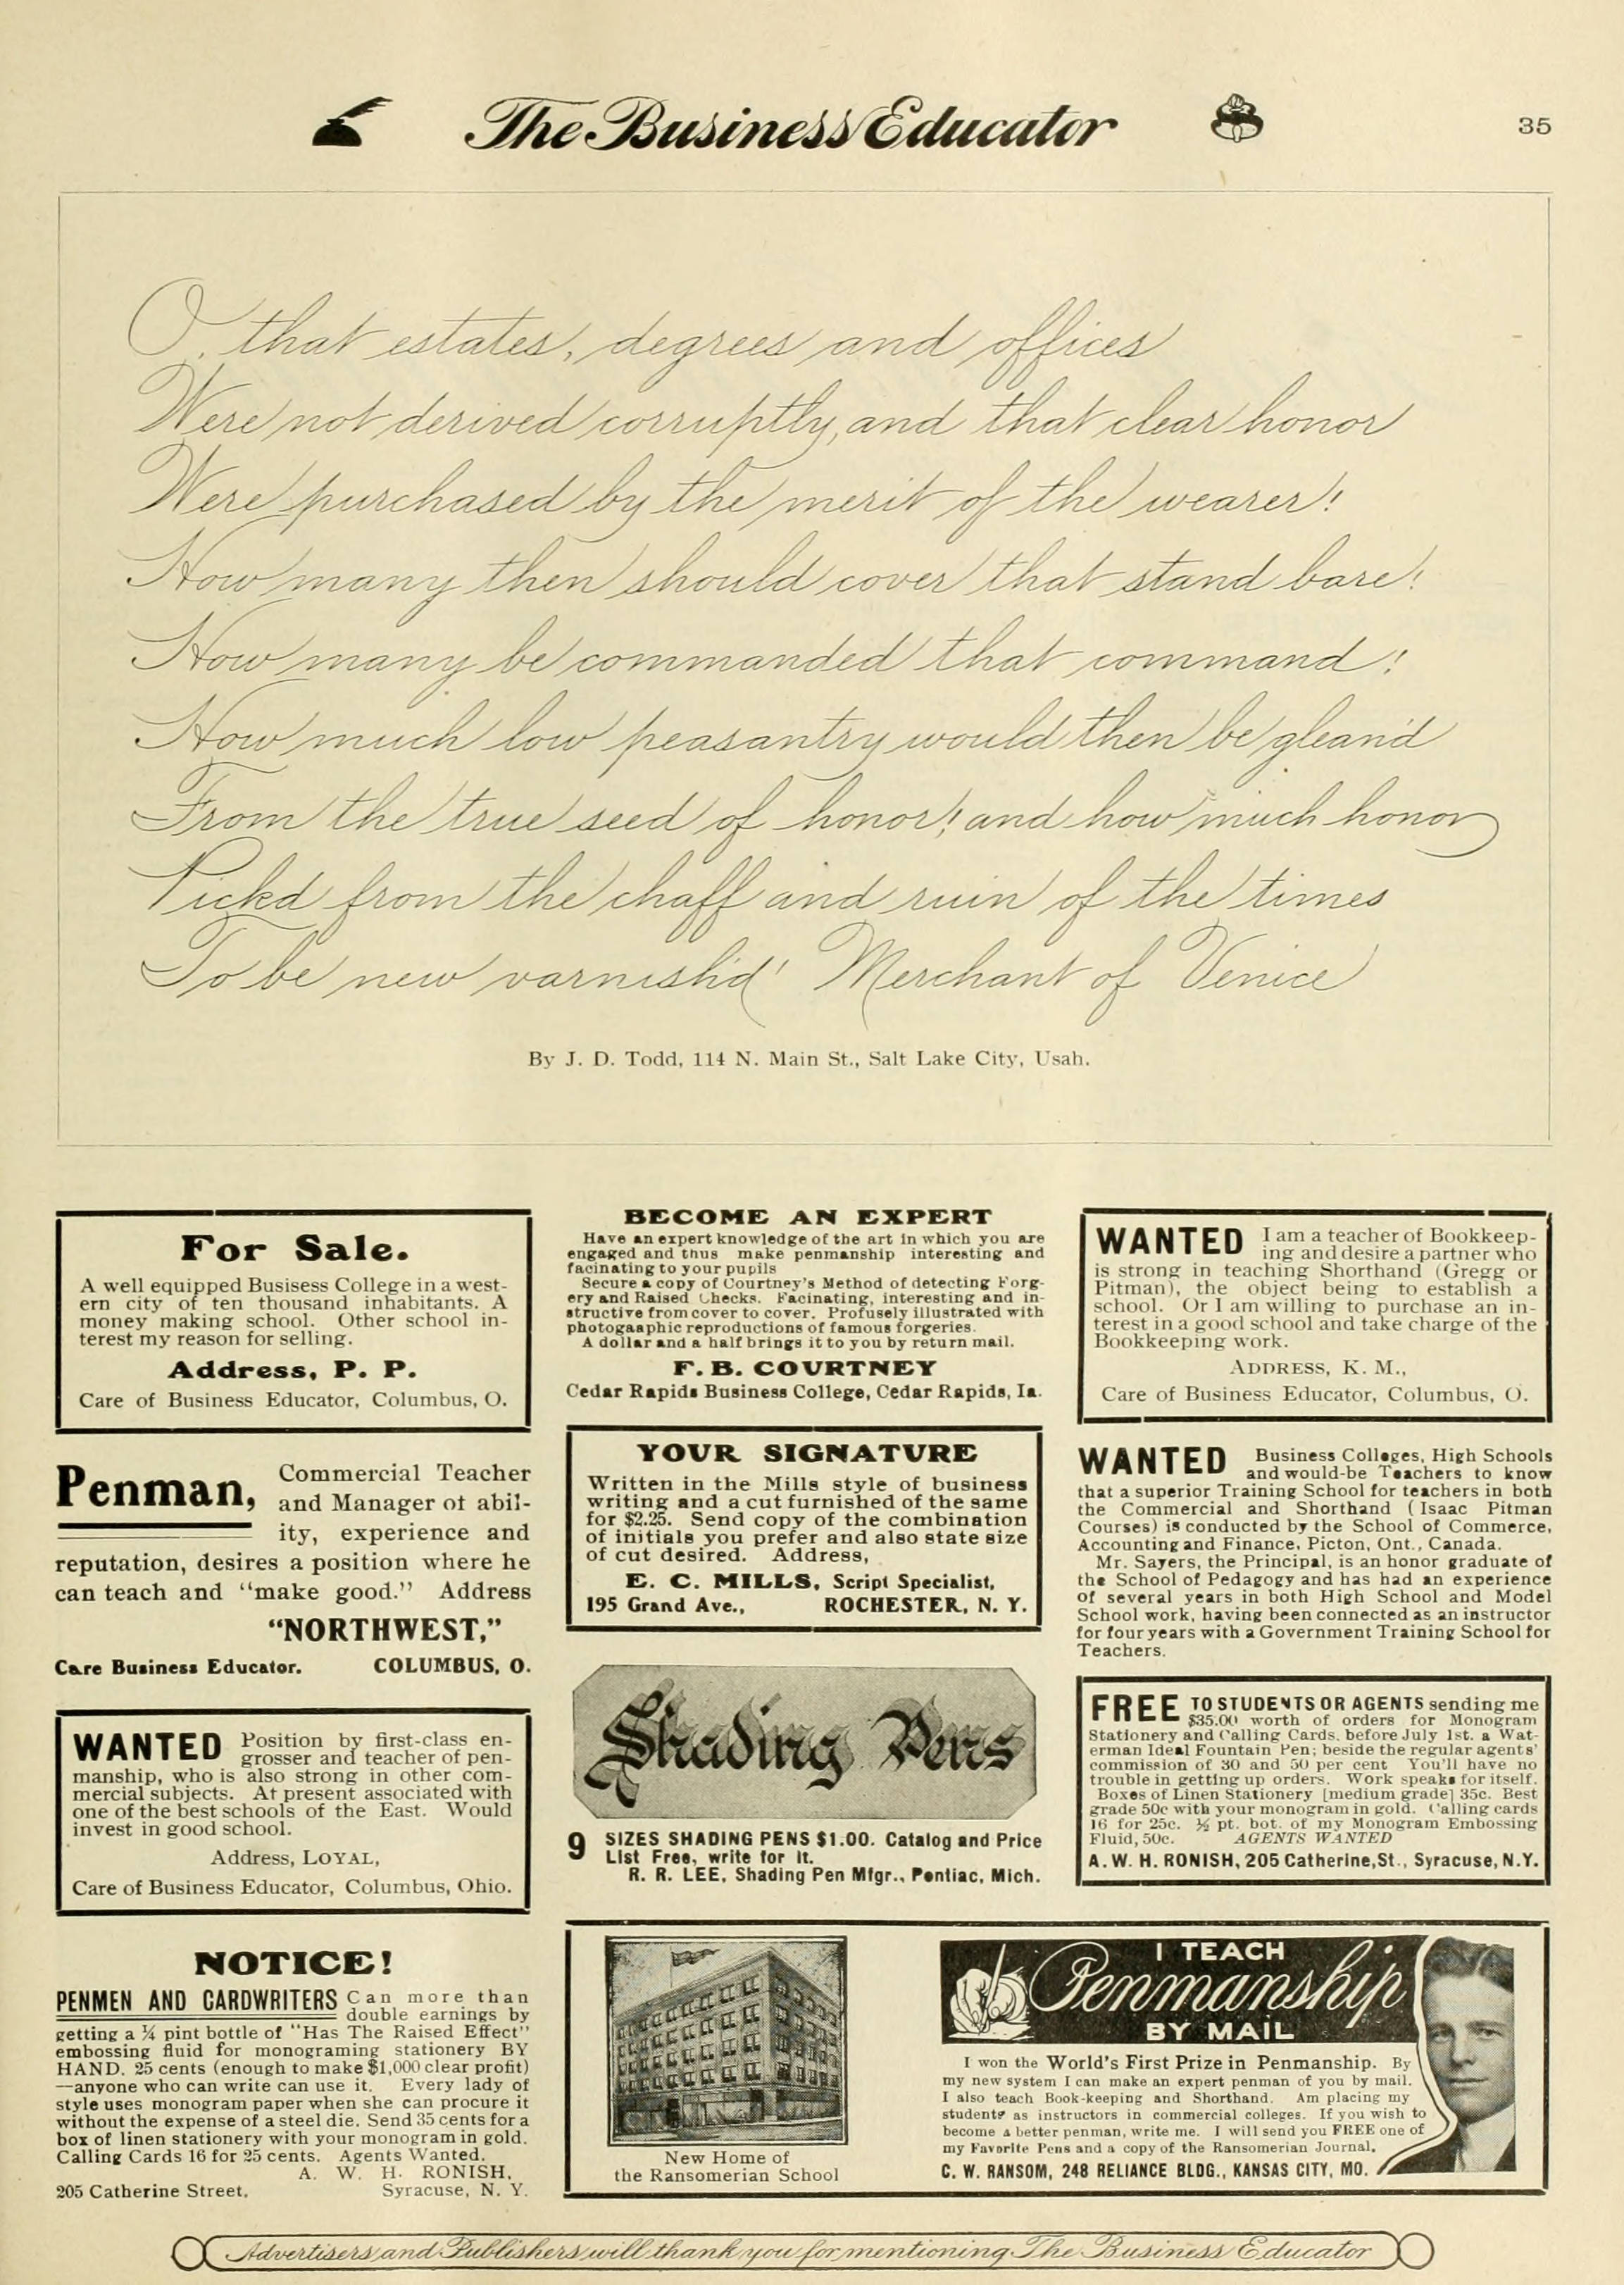 The Business Educator
35
O, that estates, degrees and offices
Were not derived corruptly, and that clear honor
Were purchased by the merit of the wearer!
How many then should cover that stand bare!
How many be commanded that command!
How much low peasantry would then be glean'd
From the true seed of honor! and how much honor
Pick'd from the chaff and ruin of the times
To be new varnish'd! Merchant of Venice
By J. D. Todd, 114 N. Main St., Salt Lake City, Usah.
For Sale.
A well equipped Busisess College in a west-
ern city of ten thousand inhabitants. A
money making school. Other school in-
terest my reason for selling.
Address, P. P.
Care of Business Educator, Columbus, O.
Penman, Commercial Teacher
and Manager ot abil-
ity, experience and
reputation, desires a position where he
can teach and "make good." Address
"NORTHWEST,"
Care Business Educator. COLUMBUS, O.
WANTED Position by first-class en-
grosser and teacher of pen-
manship, who is also strong in other com-
mercial subjects. At present associated with
one of the best schools of the East. Would
invest in good school.
Address, LOYAL,
Care of Business Educator, Columbus, Ohio.
NOTICE!
PENMEN AND CARDWRITERS Can more than
double earnings by
getting a ¼ pint bottle of "Has The Raised Effect"
embossing fluid for monograming stationery BY
HAND. 25 cents (enough to make $1,000 clear profit)
—anyone who can write can use it. Every lady of
style uses monogram paper when she can procure it
without the expense of a steel die. Send 35 cents for a
box of linen stationery with your monogram in gold.
Calling Cards 16 for 25 cents. Agents Wanted.
A. W. H. RONISH,
205 Catherine Street, Syracuse, N. Y.
BECOME AN EXPERT
Have an expert knowledge of the art in which you are
engaged and thus make penmanship interesting and
facinating to your pupils
Secure a copy of Courtney's Method of detecting Forg-
ery and Raised Checks. Facinating, interesting and in-
structive from cover to cover. Profusely illustrated with
photogaaphic reproductions of famous forgeries.
A dollar and a half brings it to you by return mail.
F. B. COURTNEY
Cedar Rapids Business College, Cedar Rapids, Ia.
YOUR SIGNATURE
Written in the Mills style of business
writing and a cut furnished of the same
for $2.25. Send copy of the combination
of initials you prefer and also state size
of cut desired. Address,
E. C. MILLS, Script Specialist,
195 Grand Ave., ROCHESTER, N. Y.
Shading Pens
9 SIZES SHADING PENS $1.00. Catalog and Price
List Free, write for it.
R. R. LEE, Shading Pen Mfgr., Pontiac, Mich.
WANTED I am a teacher of Bookkeep-
ing and desire a partner who
is strong in teaching Shorthand (Gregg or
Pitman), the object being to establish a
school. Or I am willing to purchase an in-
terest in a good school and take charge of the
Bookkeeping work.
ADDRESS, K. M.,
Care of Business Educator, Columbus, O.
WANTED Business Colleges, High Schools
and would-be Teachers to know
that a superior Training School for teachers in both
the Commercial and Shorthand (Isaac Pitman
Courses) is conducted by the School of Commerce,
Accounting and Finance, Picton, Ont., Canada.
Mr. Sayers, the Principal, is an honor graduate of
the School of Pedagogy and has had an experience
of several years in both High School and Model
School work, having been connected as an instructor
for four years with a Government Training School for
Teachers.
FREE TO STUDENTS OR AGENTS sending me
$35.00 worth of orders for Monogram
Stationery and Calling Cards, before July 1st. a Wat-
erman Ideal Fountain Pen; beside the regular agents'
commission of 30 and 50 per cent You'll have no
trouble in getting up orders. Work speaks for itself.
Boxes of Linen Stationery [medium grade] 35c. Best
grade 50c with your monogram in gold. Calling cards
16 for 25c. ½ pt. bot. of my Monogram Embossing
Fluid, 50c. AGENTS WANTED
A. W. H. RONISH, 205 Catherine, St., Syracuse, N.Y.
New Home of
the Ransomerian School
I TEACH
Penmanship
BY MAIL
I won the World's First Prize in Penmanship. By
my new system I can make an expert penman of you by mail.
I also teach Book-keeping and Shorthand. Am placing my
students as instructors in commercial colleges. If you wish to
become a better penman, write me. I will send you FREE one of
my Favorite Pens and a copy of the Ransomerian Journal.
C. W. RANSOM, 248 RELIANCE BLDG., KANSAS CITY, MO.
Advertisers and Publishers will thank you for mentioning The Business Educator